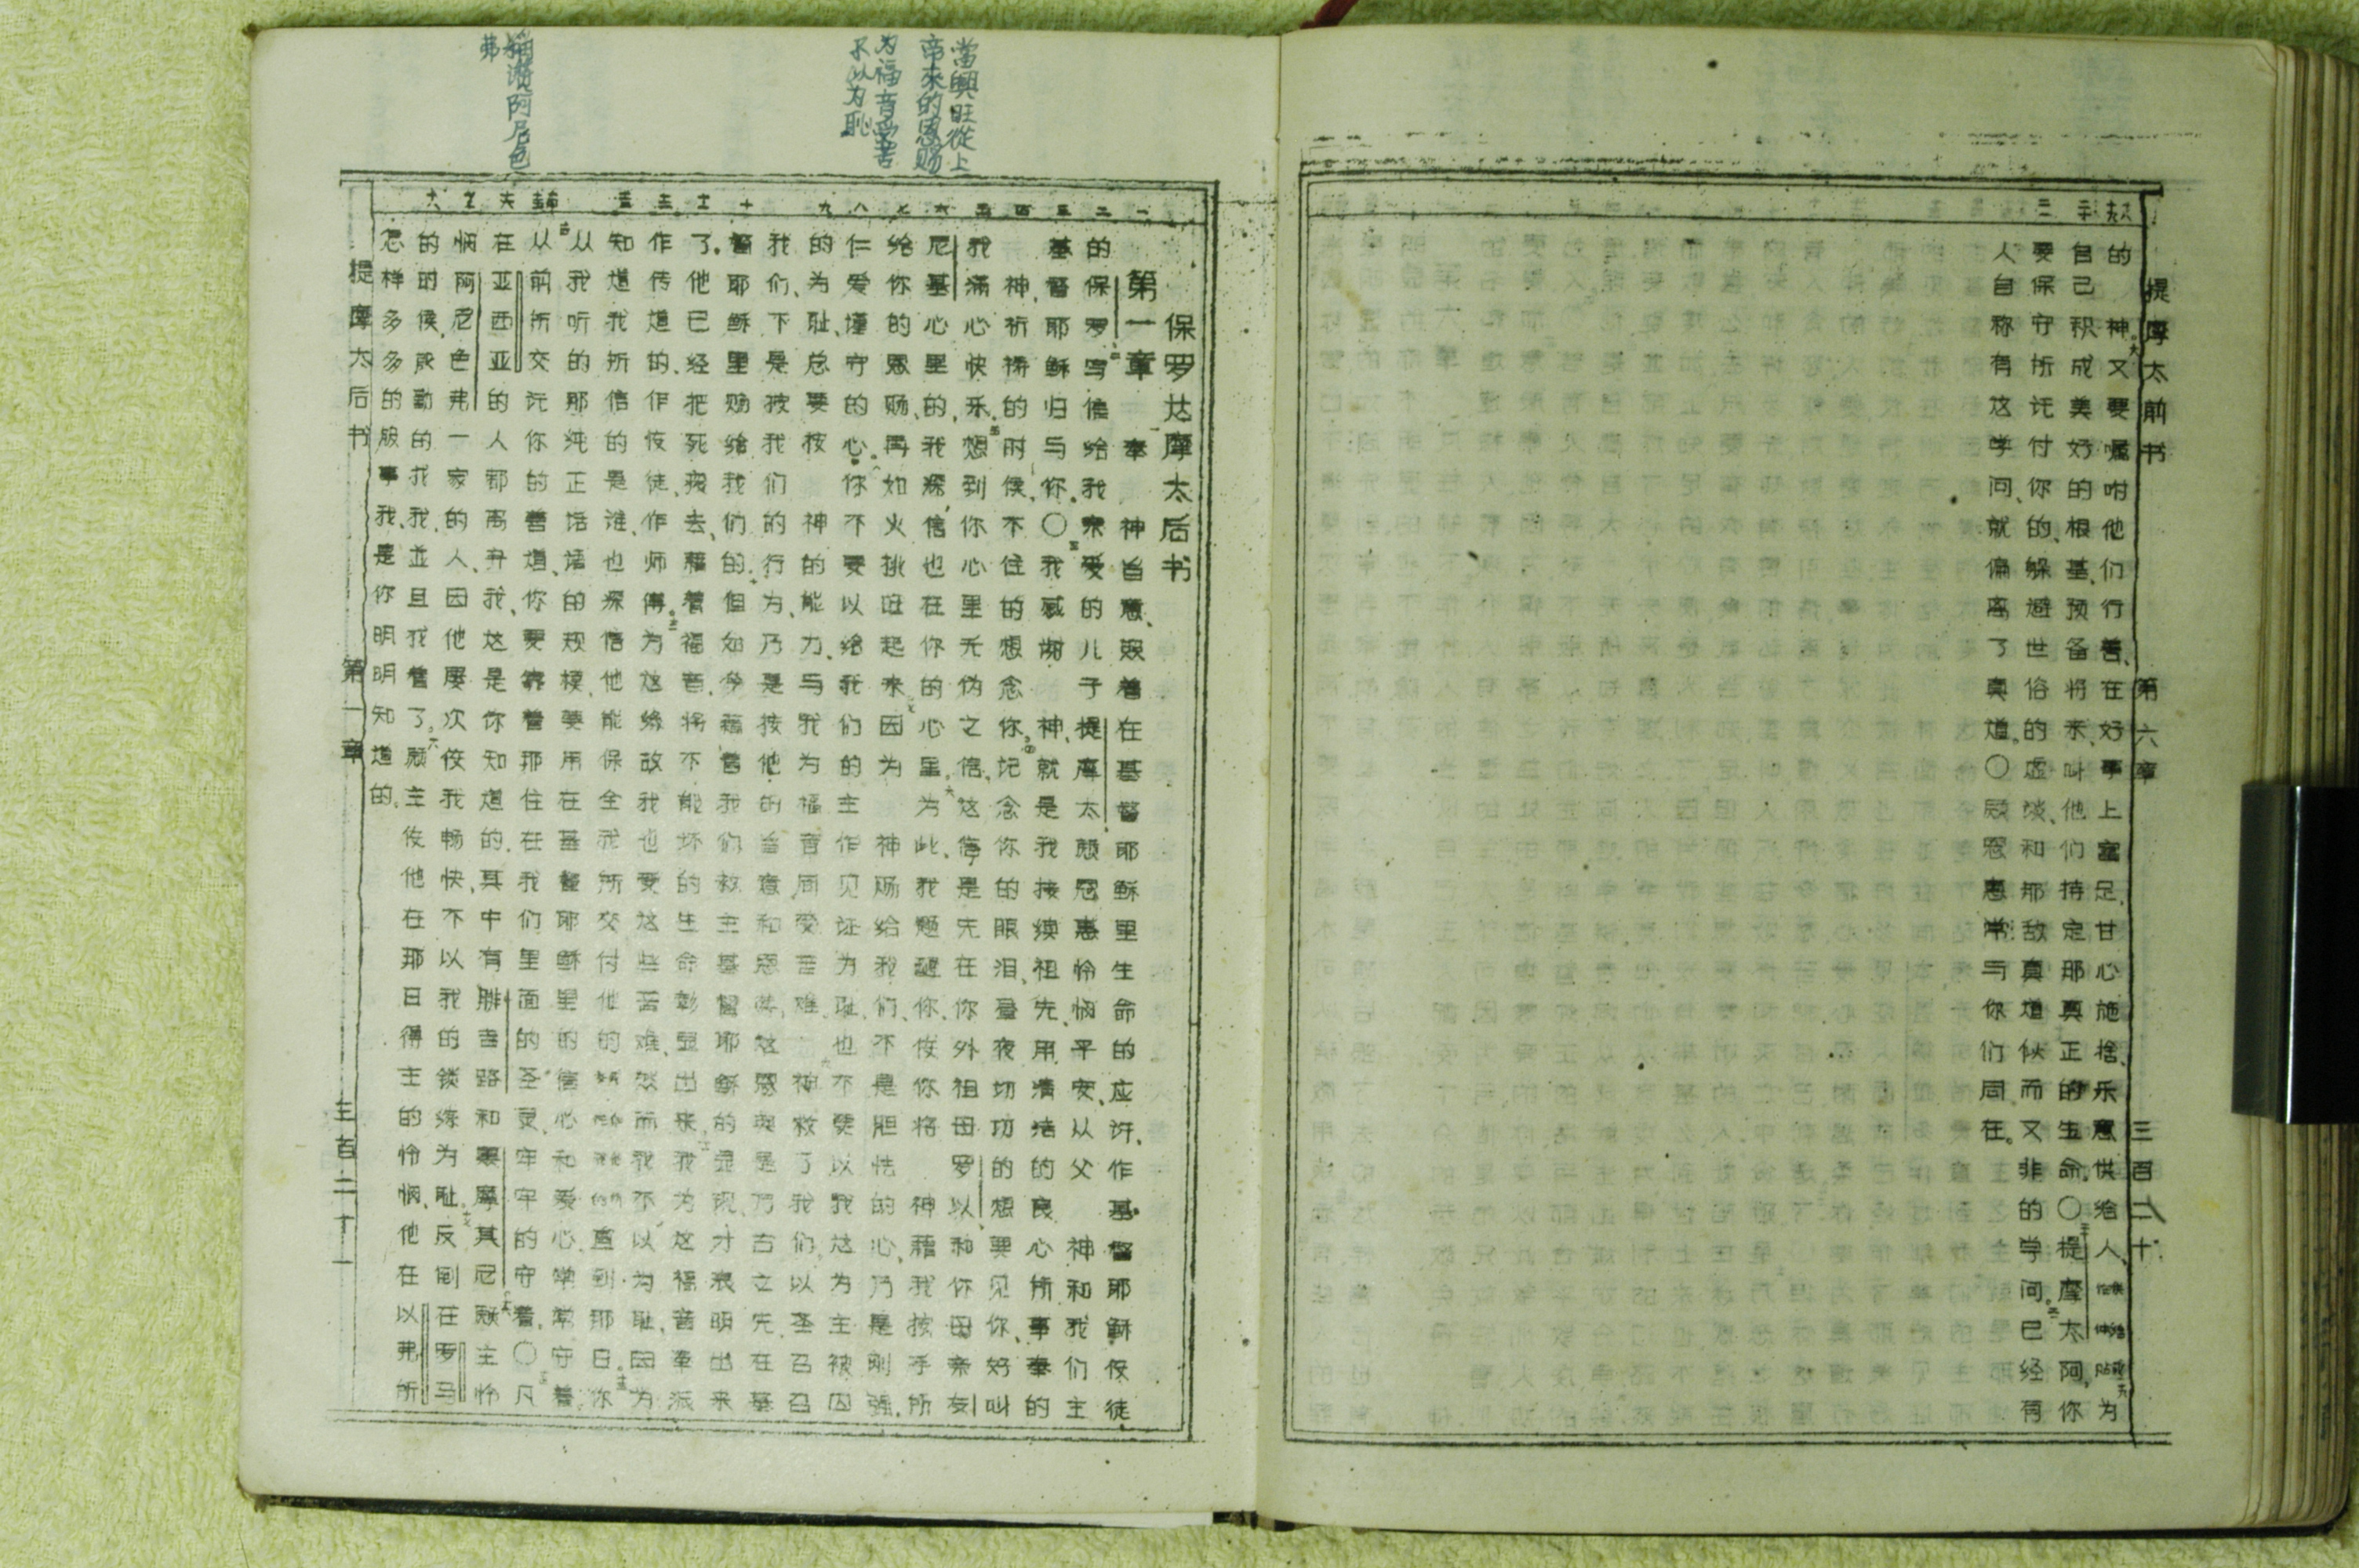 提摩太前书 第六章 三百二十
的神。又要嘱咐他们行善、在好事上富足、甘心施捨、乐意供给人、为
自己积成美好的根基、预备将来、叫他们持定那真正的生命。〇提摩太阿、你
要保守所讬付你的、躲避世俗的虚谈、和那敌真道似而又非的学问。已经有
人自称有这学问、就偏离了真道。〇愿恩惠常与你们同在。
當興旺從上
帝來的恩賜
为福音受苦
不以为恥
憐憫阿尼色
弗
保罗达摩太后书
第一章 奉 神旨意、照着在基督耶稣里生命的应许、作基督耶稣使徒
的保罗写信给我亲爱的儿子提摩太愿恩惠怜悯平安、从父 神和我们主
基督耶稣归与你。〇我感谢 神、就是我接续祖先、用清洁的良心所事奉的
神、祈祷的时候、不住的想念你。记念你的眼泪、昼夜切切的想要见你、好叫
我满心快乐。想到你心里无伪之信、这信是先在你外祖母罗以、和你母亲友
尼基心里的、我深信也在你的心里。为此我题醒你、使你将 神藉我按手所
给你的恩赐、再如火挑旺起来。因为 神赐给我们、不是胆怯的心、乃是刚强、
仁爱、谨守的心。你不要以给我们的主作见证为耻、也不要以我这为主被囚
的为耻、总要按 神的能力、与我为福音同受苦难。神救了我们、以圣召召
我们、不是按我们的行为、乃是按他的旨意和恩典、这恩典是万古之先、在基
督耶稣里赐给我们的、但如今藉着我们救主基督耶稣的显现才表明出来
了。他已经把死废去、藉着福音、将不能坏的生命彰显出来。我为这福音奉派
作传道的、作使徒、作师傅。为这缘故我也受这些苦难、然而我不以为耻、因为
知道我所信的是谁、也深信他能保全我所交付他的 直到那日。你
从我听的那纯正话语的规模、要用在基督耶稣里的信心、和爱心、常常守着。
从前所交讬你的善道、你要靠着那住在我们里面的圣灵、牢牢的守着。〇凡
在亚西亚的人都离弃我、这是你知道的、其中有腓吉路和黑摩其尼。愿主怜
悯阿尼色弗一家的人、因他屡次使我畅快、不以我的锁练为耻。反倒在罗马
的时候、殷勤的找我、並且找着了。愿主使他在那日得主的怜悯、他在以弗所
怎样多多的服事我、是你明明知道的。
提摩太后书 第一章 三百二十一